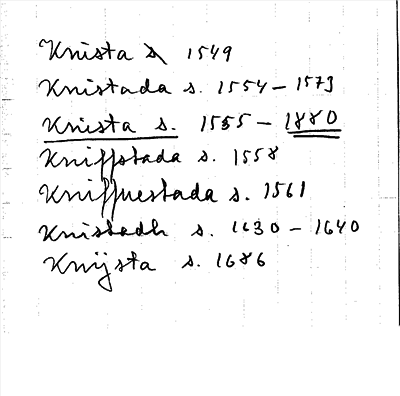 Knista s 1549
Knistada s. 1554 - 1573
Knista s. 1555 - 1880
Kniffstada s. 1558
Kniffuestada s. 1561
Knistadh s. 1630 - 1640
Knijsta s. 1686